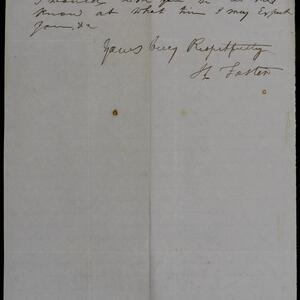 I would
know at what time I may Expect
you, &c
Yours Very Respectfully
H Foster